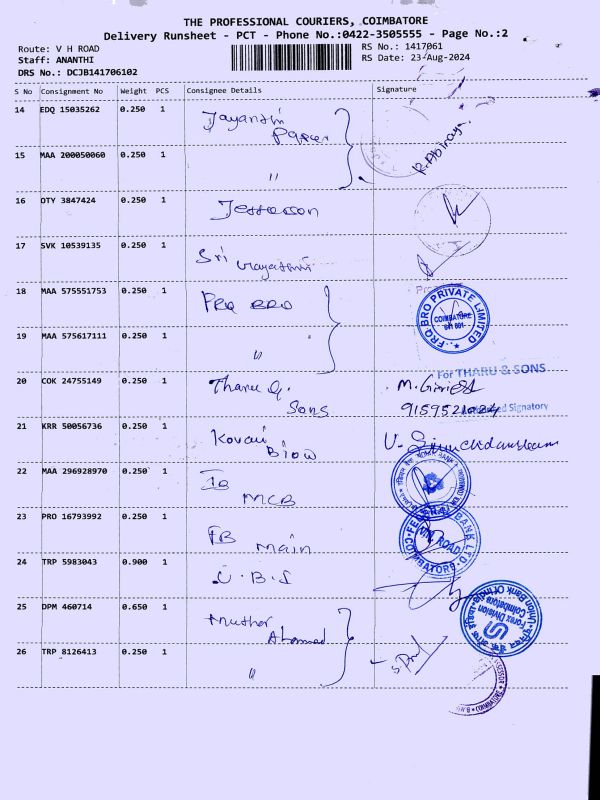 THE PROFESSIONAL COURIERS, COIMBATORE
Delivery Runsheet - PCT - Phone No.:0422-3505555 - Page No.:2
Route: V H ROAD
Staff: ANANTHI
DRS No.: DCJB141706102
RS No.: 1417061
RS Date: 23-Aug-2024
S No Consignment No Weight PCS Consignee Details Signature
14 EDQ 15035262 0.250 1 Jayanthi Paper
15 MAA 200050060 0.250 1 "
R. Abiraya
16 OTY 3847424 0.250 1
17 SVK 10539135 0.250 1 Sri
18 MAA 575551753 0.250 1 FRQ BRO
FRQ BRO PRIVATE LIMITED
COIMBATORE
641 001
19 MAA 575617111 0.250 1 "
For THARU & SONS
20 COK 24755149 0.250 1 Tharu & Sons
Signatory
21 KRR 50056736 0.250 1 Kovai
22 MAA 296928970 0.250 1 IB MCB
23 PRO 16793992 0.250 1 FB Main
FEDERAL BANK LTD.
COIMBATORE
24 TRP 5983043 0.900 1 U.B.I
Union Bank Of India
Forex Division
Coimbatore
25 DPM 460714 0.650 1
26 TRP 8126413 0.250 1 "